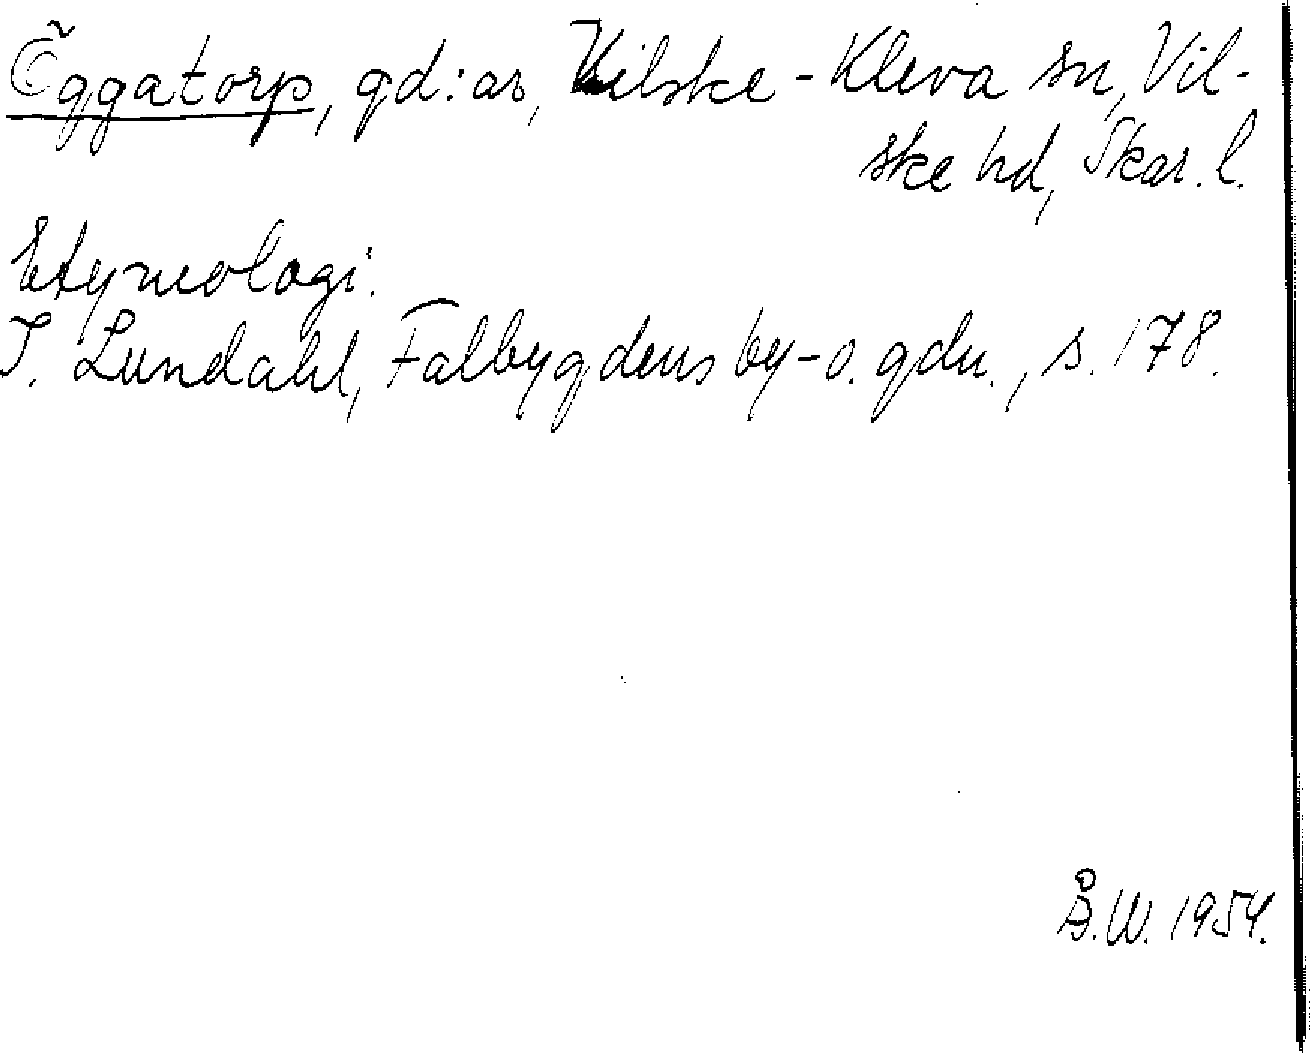 Öggatorp, gd:ar, Vilske-Kleva sn, Vil-
ske hd, Skar. l.
Etymologi.
I. Lundahl, Falbygdens by- o. gdn., s. 178.
Å.W. 1954.